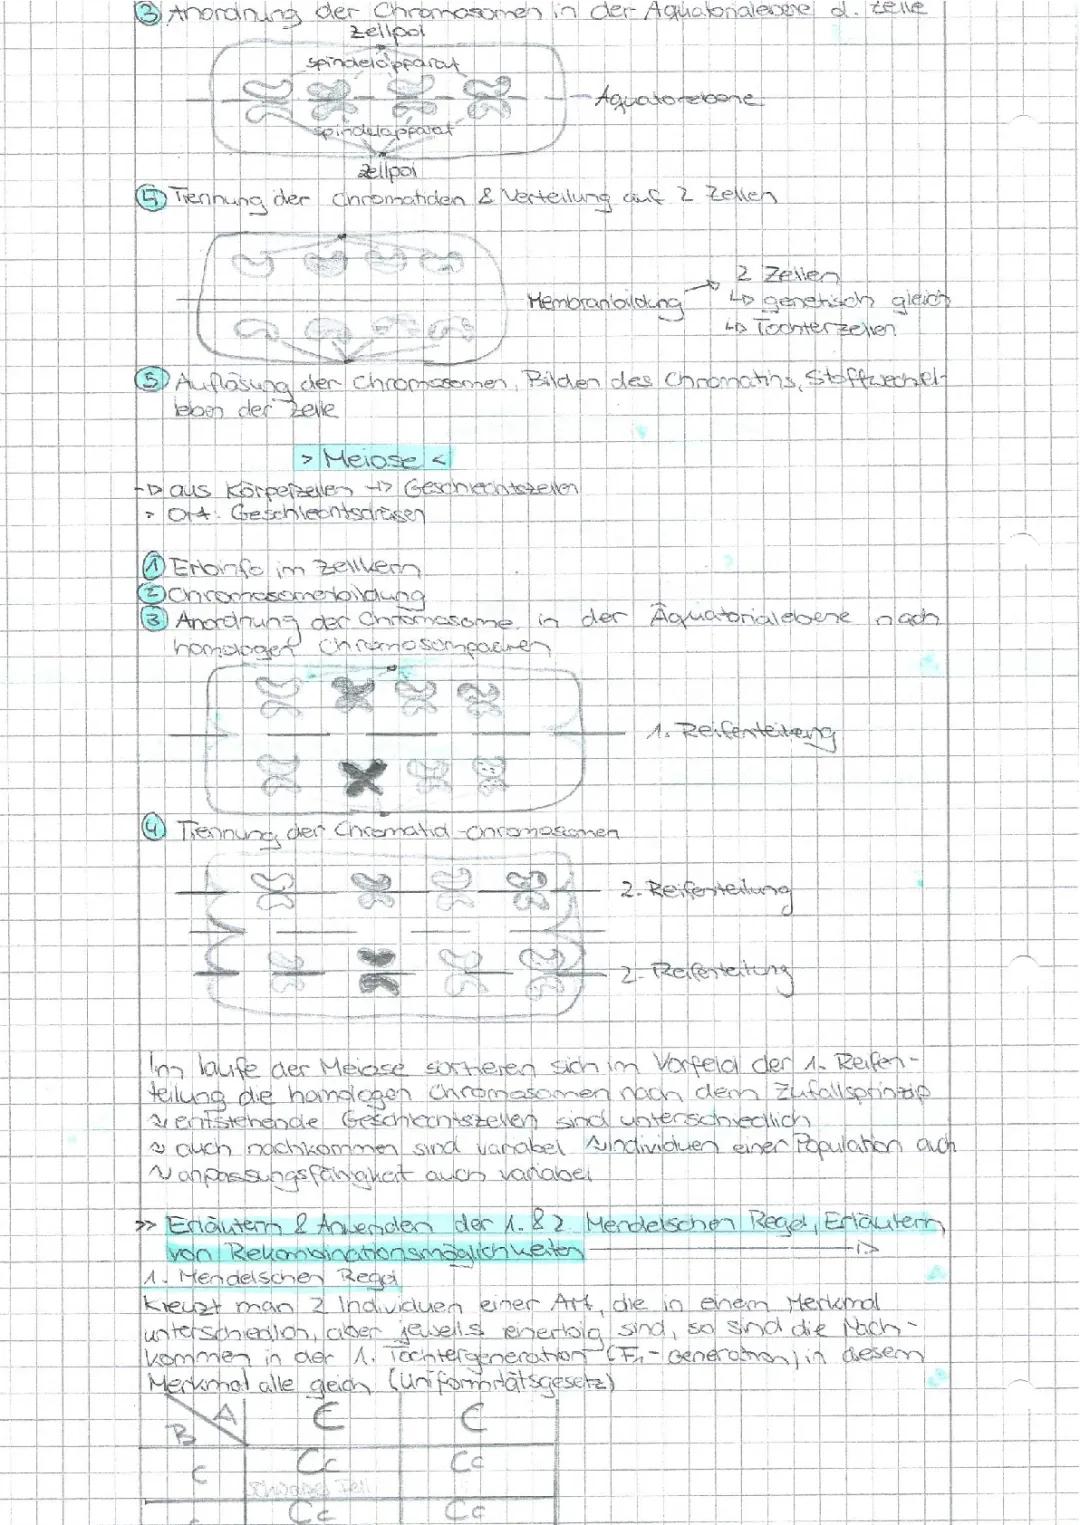 ③ Anordnung der Chromosomen in der Äquatorialebene d. Zelle
Zellpol
Spindelapparat
Äquatorebene
Spindelapparat
Zellpol
④ Trennung der Chromatiden & Verteilung auf 2 Zellen
2 Zellen
Membranbildung
↳ genetisch gleich
↳ Tochterzellen
⑤ Auflösung der Chromosomen, Bilden des Chromatins, Stoffwechsel-
leben der Zelle
> Meiose <
→ aus Körperzellen → Geschlechtszellen
- Ort: Geschlechtsdrüsen
① Erbinfo im Zellkern
② Chromosomenbildung
③ Anordnung der Chromosome in der Äquatorialebene nach
homologen Chromosompaaren
1. Reifenteilung
④ Trennung der Chromatid-chromosomen
2. Reifenteilung
2. Reifenteilung
Im laufe der Meiose sortieren sich im Vorfeld der 1. Reifen-
teilung die homologen Chromosomen nach dem Zufallsprinzip
~ entstehende Geschlechtszellen sind unterschiedlich
~ auch nachkommen sind variabel ~ Individuen einer Population auch
~ anpassungsfähigkeit auch variabel
>> Erläutern & Anwenden der 1. & 2. Mendelschen Regel, Erläutern
von Rekombinationsmöglichkeiten
1. Mendelschen Regel
Kreuzt man 2 Individuen einer Art, die in einem Merkmal
unterschiedlich, aber jeweils reinerbig sind, so sind die Nach-
kommen in der 1. Tochtergeneration (F₁-Generation) in diesem
Merkmal alle gleich (Uniformitätsgesetz)
A C C
B
c Cc Cc
Fell
c Cc Cc